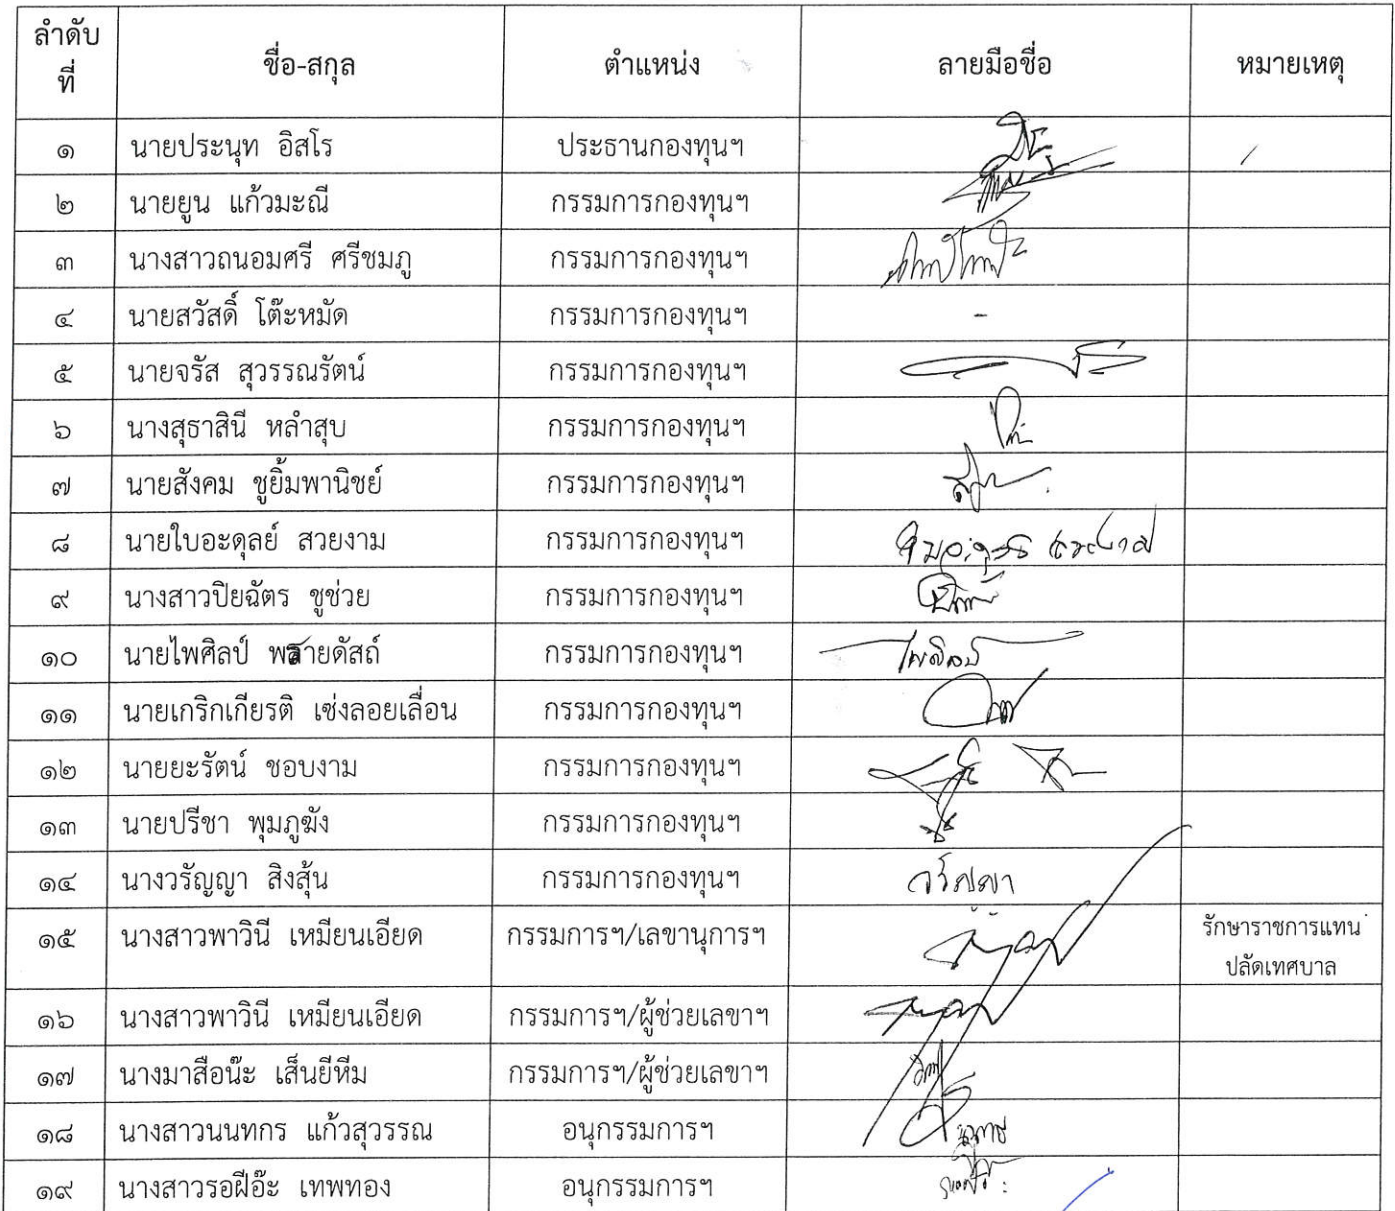 ลำดับ
ที่ ชื่อ-สกุล ตำแหน่ง ลายมือชื่อ หมายเหตุ
๑ นายประนุท อิสโร ประธานกองทุนฯ
๒ นายยูน แก้วมะณี กรรมการกองทุนฯ
๓ นางสาวถนอมศรี ศรีชมภู กรรมการกองทุนฯ
๔ นายสวัสดิ์ โต๊ะหมัด กรรมการกองทุนฯ -
๕ นายจรัส สุวรรณรัตน์ กรรมการกองทุนฯ
๖ นางสุธาสินี หลำสุบ กรรมการกองทุนฯ
๗ นายสังคม ชูยิ้มพานิชย์ กรรมการกองทุนฯ
๘ นายใบอะดุลย์ สวยงาม กรรมการกองทุนฯ
๙ นางสาวปิยฉัตร ชูช่วย กรรมการกองทุนฯ
๑๐ นายไพศิลป์ พลายดัสถ์ กรรมการกองทุนฯ ไพศิลป์
๑๑ นายเกริกเกียรติ เซ่งลอยเลื่อน กรรมการกองทุนฯ
๑๒ นายยะรัตน์ ชอบงาม กรรมการกองทุนฯ
๑๓ นายปรีชา พุมภูฆัง กรรมการกองทุนฯ
๑๔ นางวรัญญา สิงสุ้น กรรมการกองทุนฯ วรัญญา
๑๕ นางสาวพาวินี เหมียนเอียด กรรมการฯ/เลขานุการฯ รักษาราชการแทน
ปลัดเทศบาล
๑๖ นางสาวพาวินี เหมียนเอียด กรรมการฯ/ผู้ช่วยเลขาฯ
๑๗ นางมาสือน๊ะ เส็นยีหีม กรรมการฯ/ผู้ช่วยเลขาฯ
๑๘ นางสาวนนทกร แก้วสุวรรณ อนุกรรมการฯ
๑๙ นางสาวรอฝีอ๊ะ เทพทอง อนุกรรมการฯ